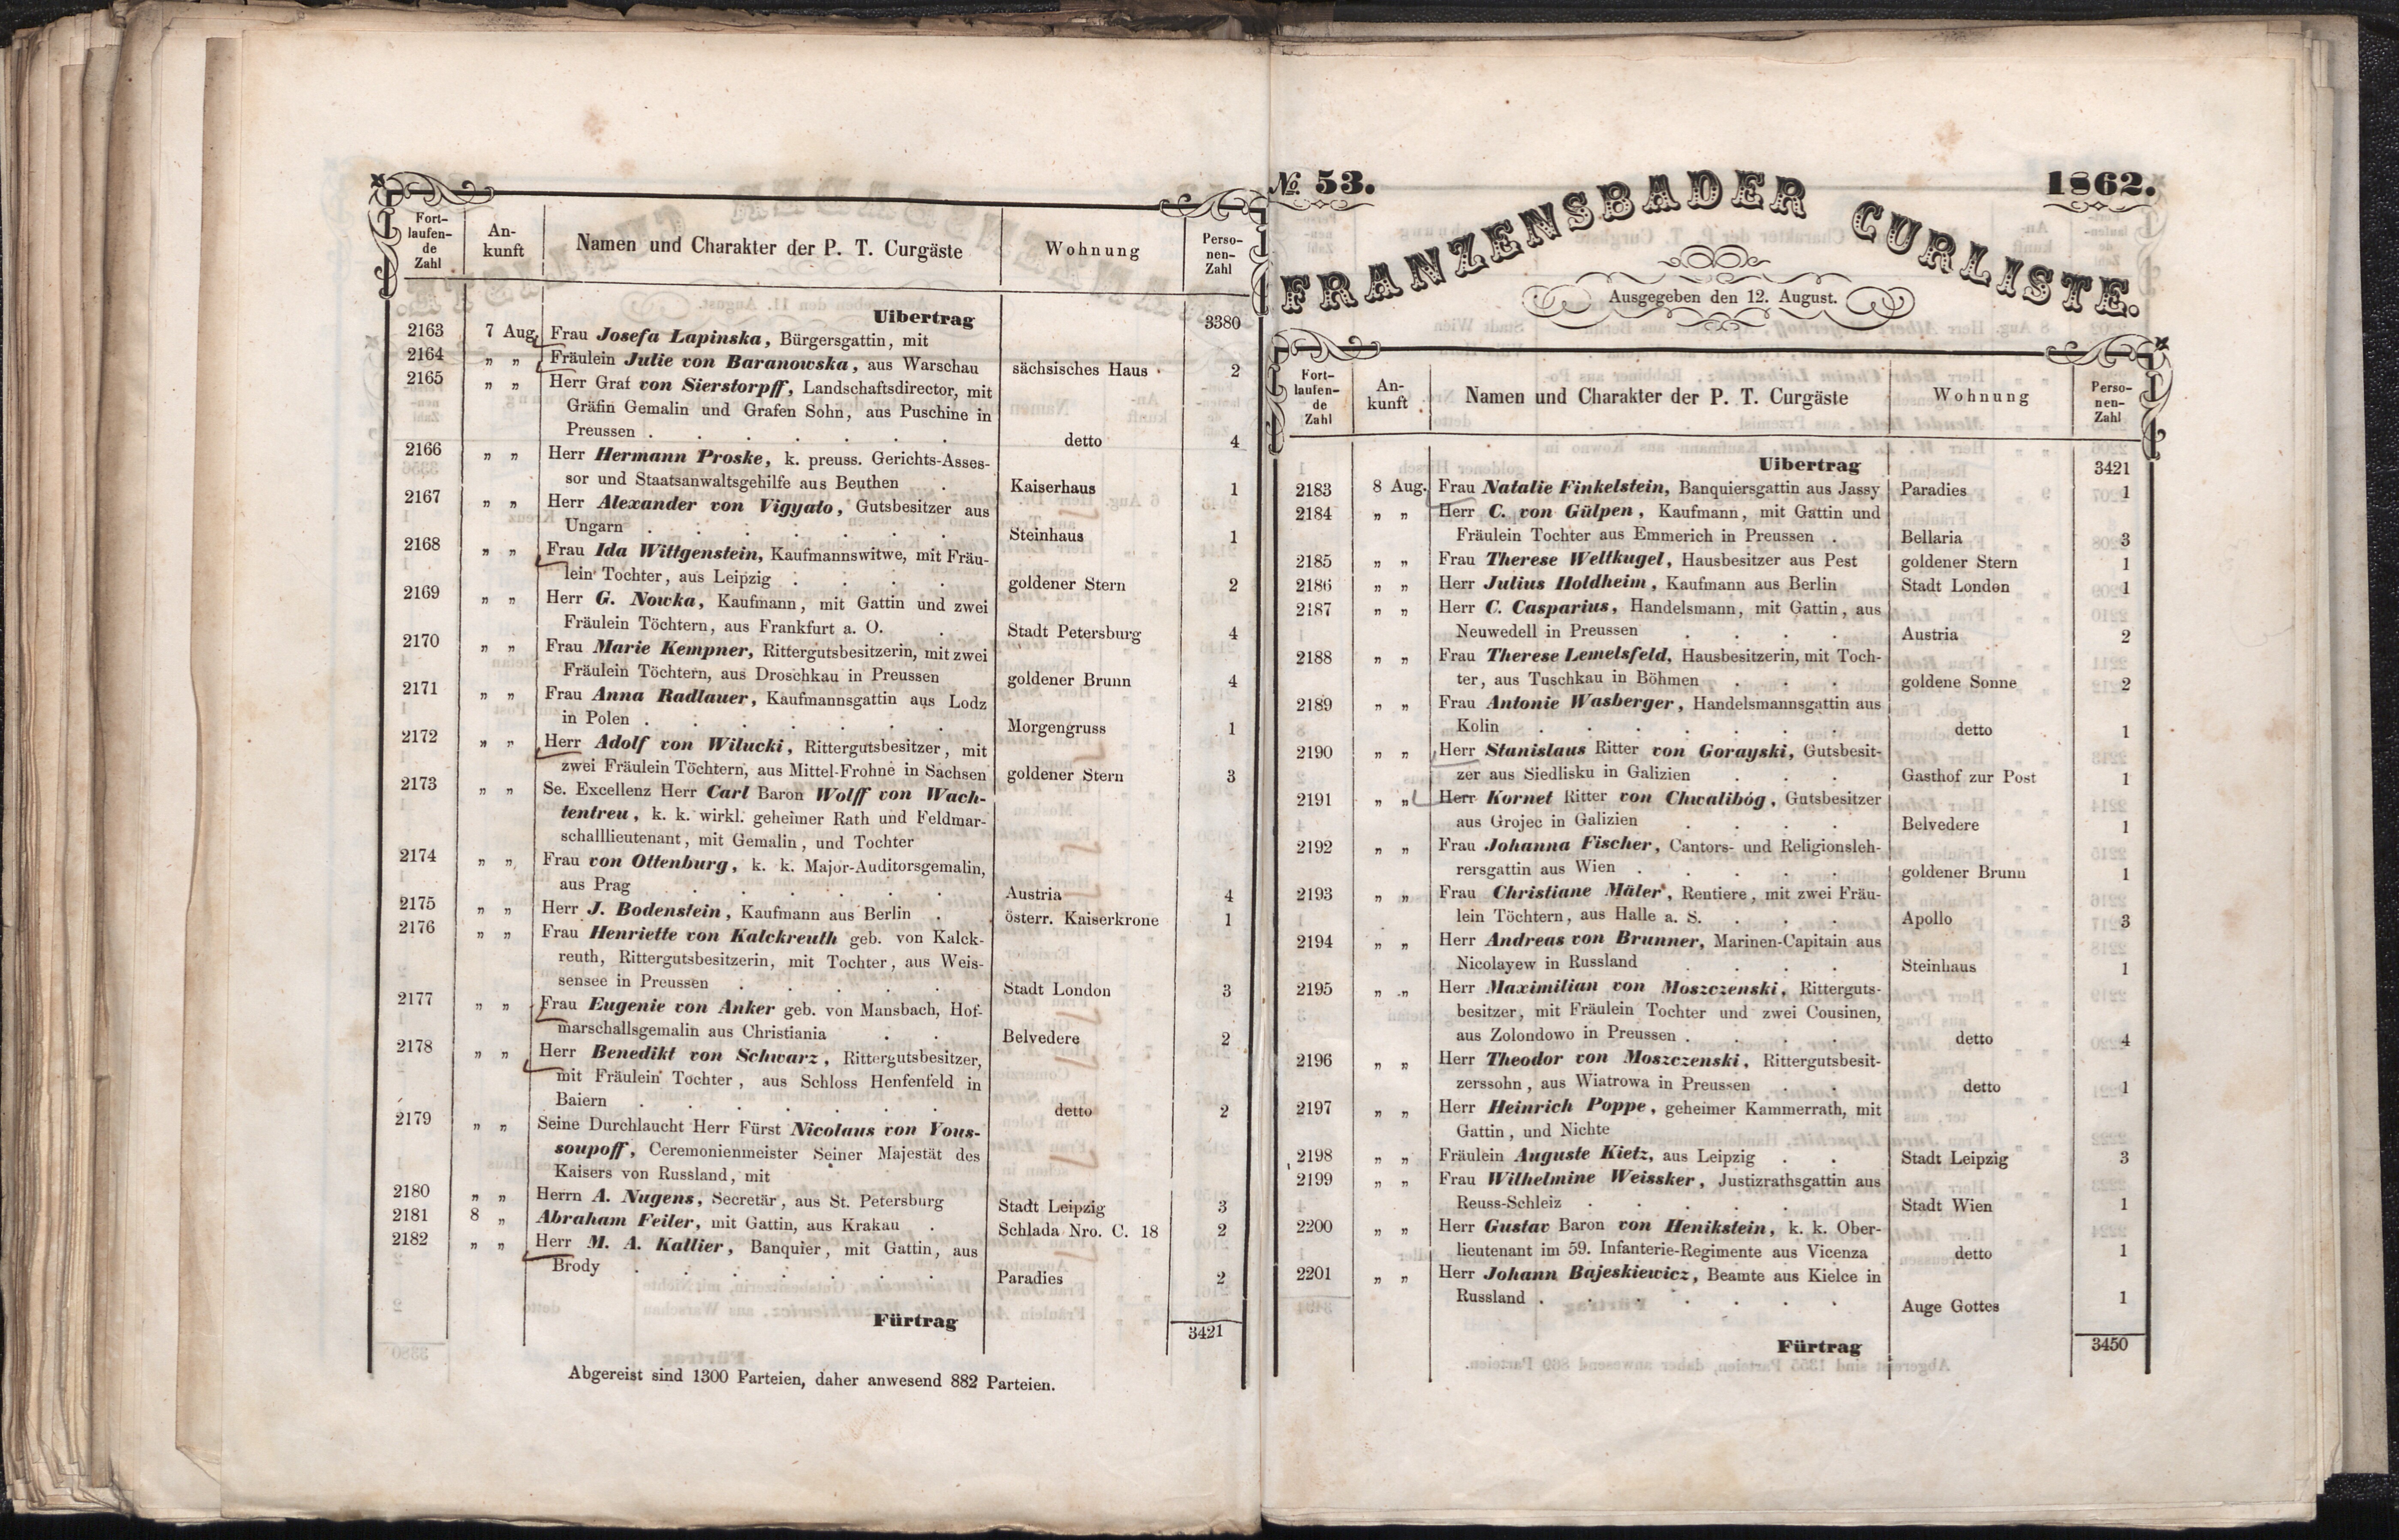 Fort-
laufen-
de
Zahl
An-
kunft
Namen und Charakter der P. T. Curgäste
Wohnung
Perso-
nen-
Zahl
Uibertrag 3380
2163 7 Aug. Frau Josefa Lapinska, Bürgersgattin, mit
2164 „ „ Fräulein Julie von Baranowska, aus Warschau sächsisches Haus 2
2165 „ „ Herr Graf von Sierstorpff, Landschaftsdirector, mit
Gräfin Gemalin und Grafen Sohn, aus Puschine in
Preussen . . . . . . . detto 4
2166 „ „ Herr Hermann Proske, k. preuss. Gerichts-Asses-
sor und Staatsanwaltsgehilfe aus Beuthen . Kaiserhaus 1
2167 „ „ Herr Alexander von Vigyato, Gutsbesitzer aus
Ungarn . . . . . . . Steinhaus 1
2168 „ „ Frau Ida Wittgenstein, Kaufmannswitwe, mit Fräu-
lein Tochter, aus Leipzig . . . . goldener Stern 2
2169 „ „ Herr G. Nowka, Kaufmann, mit Gattin und zwei
Fräulein Töchtern, aus Frankfurt a. O. . Stadt Petersburg 4
2170 „ „ Frau Marie Kempner, Rittergutsbesitzerin, mit zwei
Fräulein Töchtern, aus Droschkau in Preussen goldener Brunn 4
2171 „ „ Frau Anna Radlauer, Kaufmannsgattin aus Lodz
in Polen . . . . . . . Morgengruss 1
2172 „ „ Herr Adolf von Wilucki, Rittergutsbesitzer, mit
zwei Fräulein Töchtern, aus Mittel-Frohne in Sachsen goldener Stern 3
2173 „ „ Se. Excellenz Herr Carl Baron Wolff von Wach-
tentreu, k. k. wirkl. geheimer Rath und Feldmar-
schalllieutenant, mit Gemalin, und Tochter
2174 „ „ Frau von Ottenburg, k. k. Major-Auditorsgemalin,
aus Prag . . . . . . Austria 4
2175 „ „ Herr J. Bodenstein, Kaufmann aus Berlin . österr. Kaiserkrone 1
2176 „ „ Frau Henriette von Kalckreuth geb. von Kalck-
reuth, Rittergutsbesitzerin, mit Tochter, aus Weis-
sensee in Preussen . . . . . Stadt London 3
2177 „ „ Frau Eugenie von Anker geb. von Mansbach, Hof-
marschallsgemalin aus Christiania . . Belvedere 2
2178 „ „ Herr Benedikt von Schwarz, Rittergutsbesitzer,
mit Fräulein Tochter, aus Schloss Henfenfeld in
Baiern . . . . . . . detto 2
2179 „ „ Seine Durchlaucht Herr Fürst Nicolaus von Yous-
soupoff, Ceremonienmeister Seiner Majestät des
Kaisers von Russland, mit
2180 „ „ Herrn A. Nugens, Secretär, aus St. Petersburg Stadt Leipzig 3
2181 8 „ Abraham Feiler, mit Gattin, aus Krakau . Schlada Nro. C. 18 2
2182 „ „ Herr M. A. Kallier, Banquier, mit Gattin, aus
Brody . . . . . . . Paradies 2
Fürtrag 3421
Abgereist sind 1300 Parteien, daher anwesend 882 Parteien.
No. 53. 1862.
FRANZENSBADER CURLISTE.
Ausgegeben den 12. August.
Fort-
laufen-
de
Zahl
An-
kunft
Namen und Charakter der P. T. Curgäste
Wohnung
Perso-
nen-
Zahl
Uibertrag 3421
2183 8 Aug. Frau Natalie Finkelstein, Banquiersgattin aus Jassy Paradies 1
2184 „ „ Herr C. von Gülpen, Kaufmann, mit Gattin und
Fräulein Tochter aus Emmerich in Preussen . Bellaria 3
2185 „ „ Frau Therese Weltkugel, Hausbesitzer aus Pest goldener Stern 1
2186 „ „ Herr Julius Holdheim, Kaufmann aus Berlin Stadt London 1
2187 „ „ Herr C. Casparius, Handelsmann, mit Gattin, aus
Neuwedell in Preussen . . . . Austria 2
2188 „ „ Frau Therese Lemelsfeld, Hausbesitzerin, mit Toch-
ter, aus Tuschkau in Böhmen . . . goldene Sonne 2
2189 „ „ Frau Antonie Wasberger, Handelsmannsgattin aus
Kolin . . . . . . . detto 1
2190 „ „ Herr Stanislaus Ritter von Gorayski, Gutsbesit-
zer aus Siedlisku in Galizien . . . Gasthof zur Post 1
2191 „ „ Herr Kornet Ritter von Chwalibóg, Gutsbesitzer
aus Grojec in Galizien . . . . Belvedere 1
2192 „ „ Frau Johanna Fischer, Cantors- und Religionsleh-
rersgattin aus Wien . . . . . goldener Brunn 1
2193 „ „ Frau Christiane Mäler, Rentiere, mit zwei Fräu-
lein Töchtern, aus Halle a. S. . . . Apollo 3
2194 „ „ Herr Andreas von Brunner, Marinen-Capitain aus
Nicolayew in Russland . . . . Steinhaus 1
2195 „ „ Herr Maximilian von Moszczenski, Ritterguts-
besitzer, mit Fräulein Tochter und zwei Cousinen,
aus Zolondowo in Preussen . . . . detto 4
2196 „ „ Herr Theodor von Moszczenski, Rittergutsbesit-
zerssohn, aus Wiatrowa in Preussen . . detto 1
2197 „ „ Herr Heinrich Poppe, geheimer Kammerrath, mit
Gattin, und Nichte
2198 „ „ Fräulein Auguste Kietz, aus Leipzig . . Stadt Leipzig 3
2199 „ „ Frau Wilhelmine Weissker, Justizrathsgattin aus
Reuss-Schleiz . . . . . Stadt Wien 1
2200 „ „ Herr Gustav Baron von Henikstein, k. k. Ober-
lieutenant im 59. Infanterie-Regimente aus Vicenza detto 1
2201 „ „ Herr Johann Bajeskiewicz, Beamte aus Kielce in
Russland . . . . . . . Auge Gottes 1
Fürtrag 3450